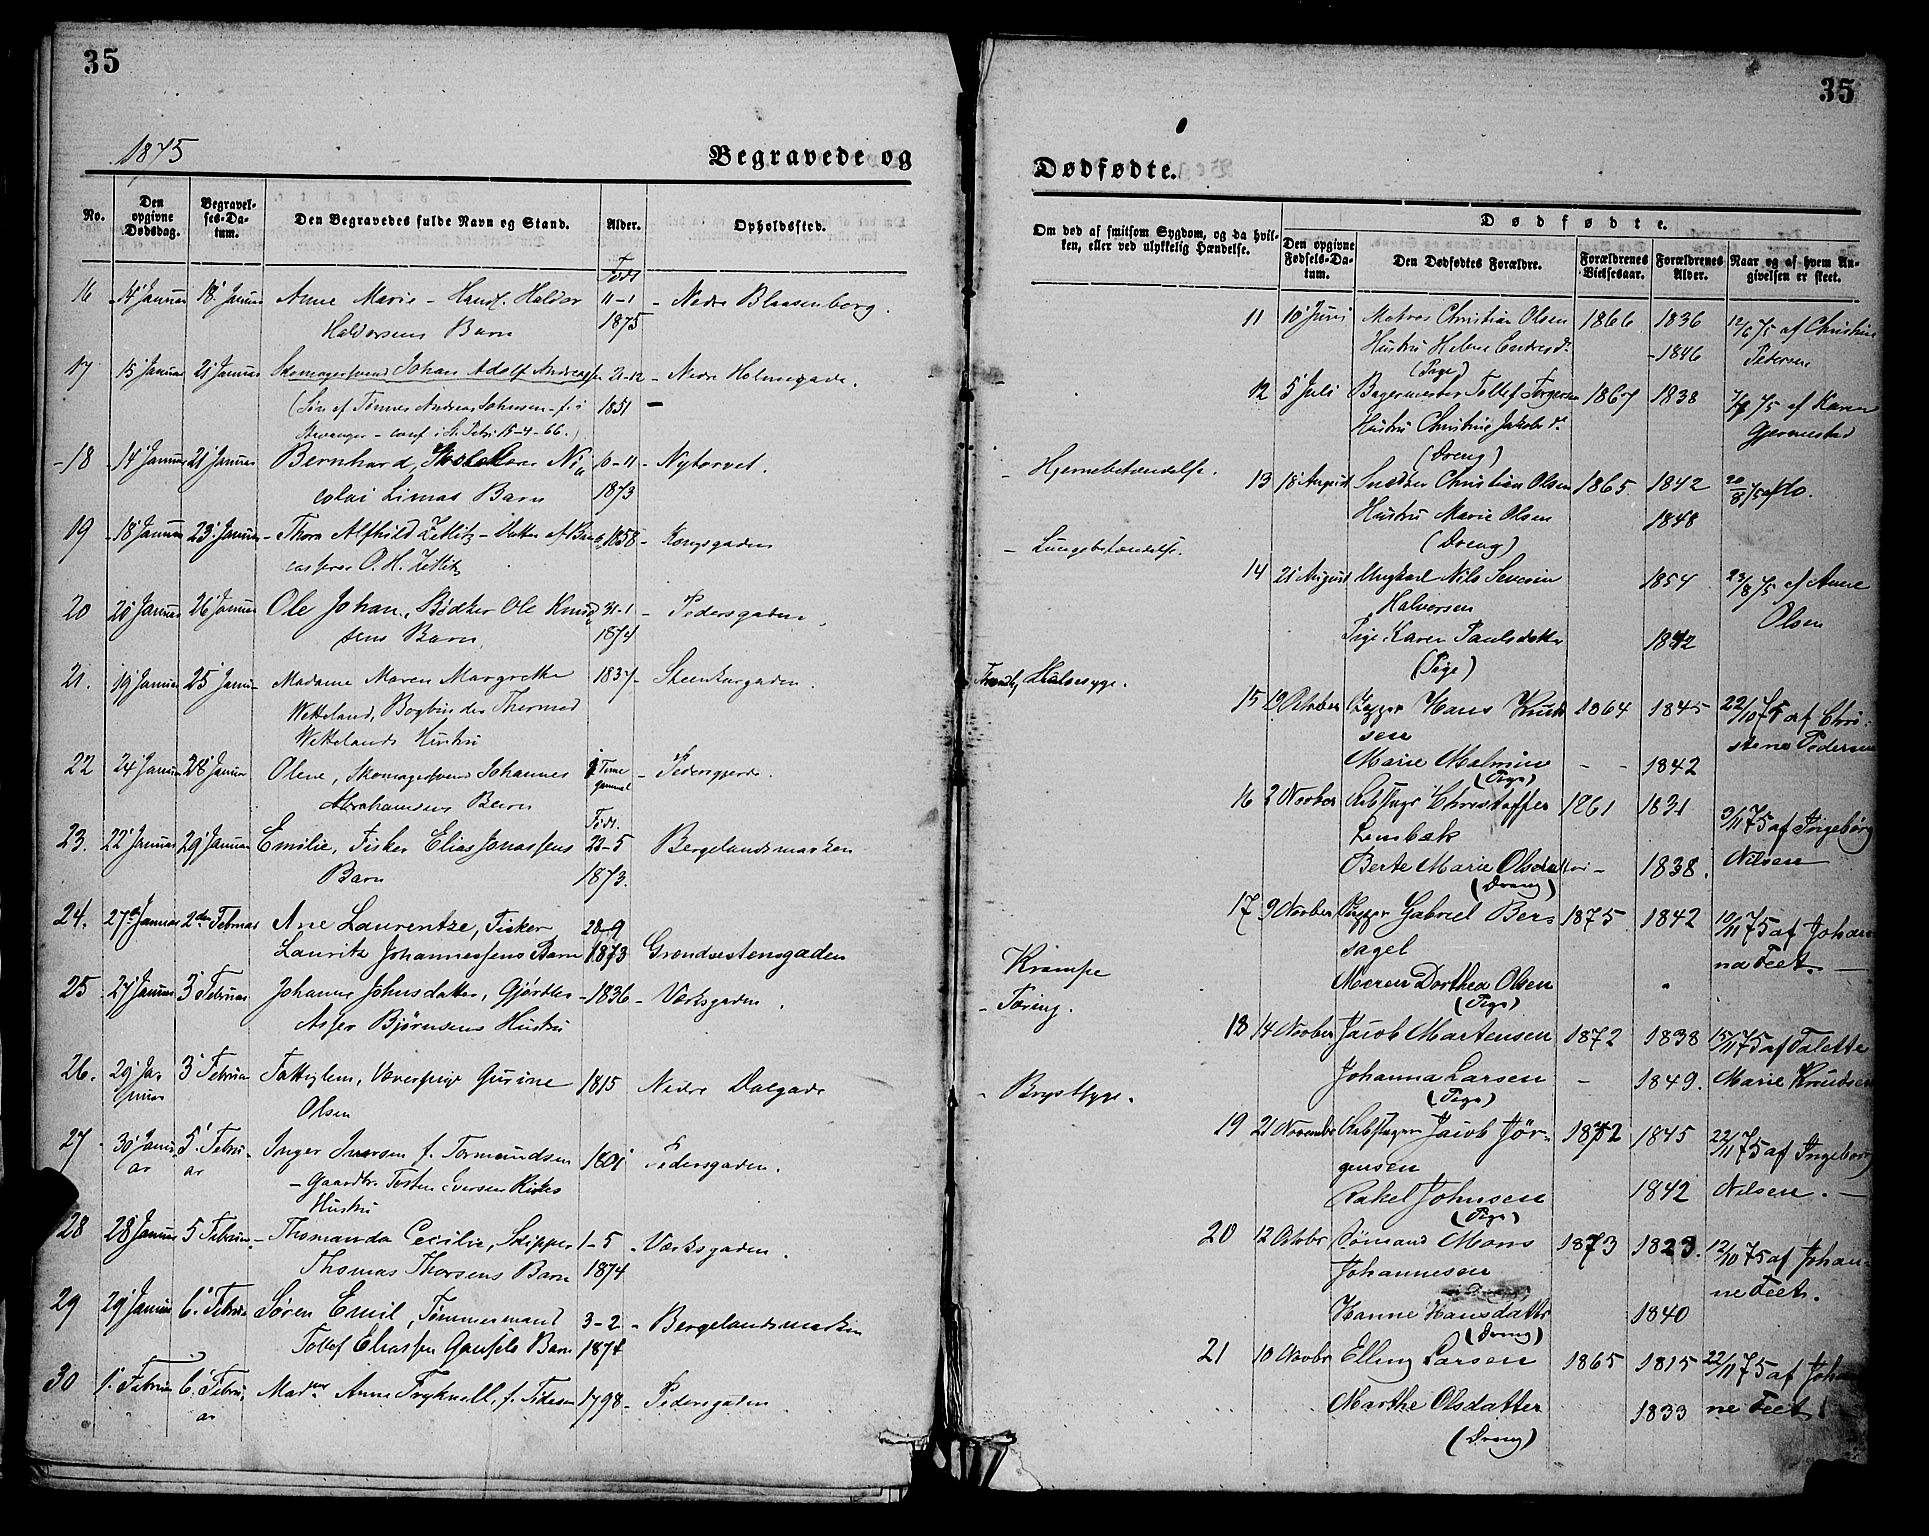 35
1875
Begravede og
No.
Den opgivne Dødsdag.
Begravelses-Datum.
Den Begravedes fulde Navn og Stand.
Alder.
Opholdssted.
16 14' Januar 18' Januar Anne Marie - Handl. Haldor Født 11-1 - Nedre Blaasenborg.
Haldorsens Barn 1875
17 15' Januar 21' Januar Skomagersvend Johan Adolf Andreassen 21-12 - Nedre Holmegade.
(Søn af Tønnes Andreas Johnsen - f. i 1851 -
Stavanger - conf. i St. Petri 15-4-66.)
18 14' Januar 21' Januar Bernhard, Ni- 6-11 - Nytorvet.
colai Limas Barn 1873
19 18' Januar 23' Januar - Thora Alfhild Zetlitz - Datter af Ban- 1858 - Kongsgaden
casserer O. H. Zetlitz
20 20' Januar 26' Januar Ole Johan, Bødker Ole Knud- 31-1 - Pedersgaden,
sens Barn 1874
21. 19' Januar 25' Janu- Madame Maren Margrethe 1837 - Steenkargaden.
Wetteland, Bogbinder Thormod
Wettelands Hustru
22 24' Januar 28' Januar Olene, Skomagersvend Johannes 1 Time gammel - Pedersgjerde.
Abrahamsens Barn
23. 22' Januar 29' Januar Emilie, Fisker Elias Jonassens Født. 22-5 Bergelandsmarken
Barn 1873.
24. 27de Januar 2den Februar Ane Laurentze, Fisker 28-9
Lauritz Johannessens Barn 1873 Grøndsestensgaden
25 27 Januar 3' Februar Johanne Johnsdatter, Gjørtler - 1836 - Værksgaden.
Asser Bjørnsens Hustru
26. 29' Januar 3' Februa Fattiglem, Væverpige Gurine 1815 Nedre Dalgade
Olsen
27 30' Januar 5' Februar Inger Iversen f. Tormundsen 1801 Pedersgaden.
- Gaardbr. Torsten Iversen
Hustru
28 28' Januar 5 Februar - Thomanda Cecilie, Skipper 1-5 - Værksgaden.
Thomas Thorsens Barn 1874
29 29' Januar 6' Februar Søren Emil, Tømmermand 3-2 - Bergelandsmarken
Tollef Eliassen Gausels Barn 1874
30 1' Februar 6' Februar Madme Anne Tryknell, f. Tidesen 1798 - Pedersgaden.
35
Dødfødte.
Om død af smitsom Sygdom, og da hvilken, eller ved ulykkelig Hændelse.
Dødfødte.
Den opgivne Fødsels-Datum.
Den Dødfødtes Forældre.
Forældrenes Vielsesaar.
Forældrenes Alder.
Naar og af hvem Angivelsen er skeet.
11 10' Juni Matros Christian Olsen 1866 1836 12/6 75 af Christine
Hustru Helene Endresdr. -1846 Pedersen
(Pige)
12 5' Juli Bagermester Tollef Torgersen 1867 1838 7/7 75 af Karen
Hustru Christine Jakobsdr. Gjermestad
(Dreng)
- Hjernebetændelse.
13 18' August Snedker Christian Olsen 1865. 1842 20/8 75 af do.
Hustru Marie Olsen 1848
(Dreng)
- Lungebetændelse.
14 21 August Ungkarl Nils Severin 1854 23/8 75 af Anne
Halvorsen Olsen
Pige Karen Paulsdatter 1842
(Pige)
Halsesyge.
15 12 October Lægger Hans Knud- 1864 1845 22/10 75 af Chri-
sen stene Pedersen
Marie Malmine - - 1842
(Pige)
16 2 Novber Rebslager Christoffer 1861 1831 3/11 75 af Ingeborg
Lembæk Nilsen
Berte Marie Olsdatter - 1838.
(Dreng)
17 9 Novber Lægger Gabriel Ber- 1875 1842 10/11 75 af Johan-
sagel na Feet. -
Krampe
Meren Dorthea Olsen "
(Pige)
- Tæring.
18 14 Novber Jacob Martensen 1872 1838 15/11 75 af Talette
Johanna Larsen - 1849. Marie Knudsen
(Pige)
- Brystsyge.
19 21 November Rebslager Jacob Jør- 1872 1845 22/11 75 af Ingeborg
gensen
Rakel Johnsen 1842 Nilsen. -
(Pige)
20 12 Octobr Sømand Mons 1873 1823. 12/10 75 af Johan-
Johannesen ne Feet.
Hanne Hansdatter 1840
(Dreng)
21 10 Novbr Elling Larsen 1865 1815 22/11 75 af Johan
Marthe Olsdatter 1833 ne Feet
(Dreng)